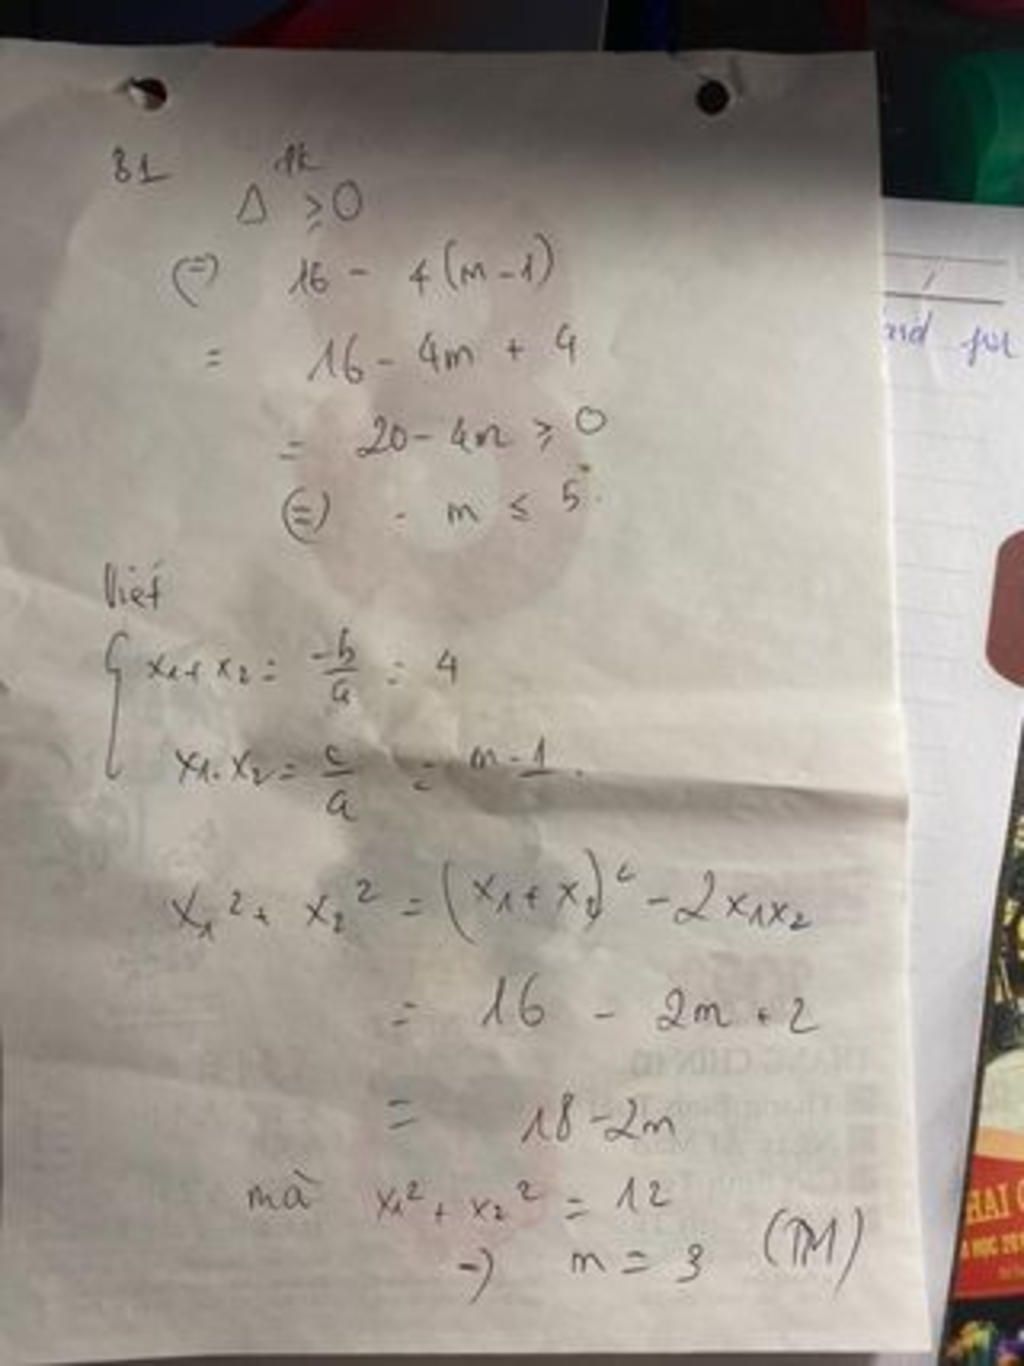 B1 đk
Δ ≥ 0
(=) 16 - 4(m-1)
= 16 - 4m + 4
= 20 - 4m ≥ 0
(=) m ≤ 5.
Viet
x1 + x2 = -b/a = 4
x1.x2 = c/a = m-1.
x1² + x2² = (x1 + x2)² - 2x1x2
= 16 - 2m + 2
= 18 - 2m
mà x1² + x2² = 12
-) m = 3 (TM)
and for
HAI